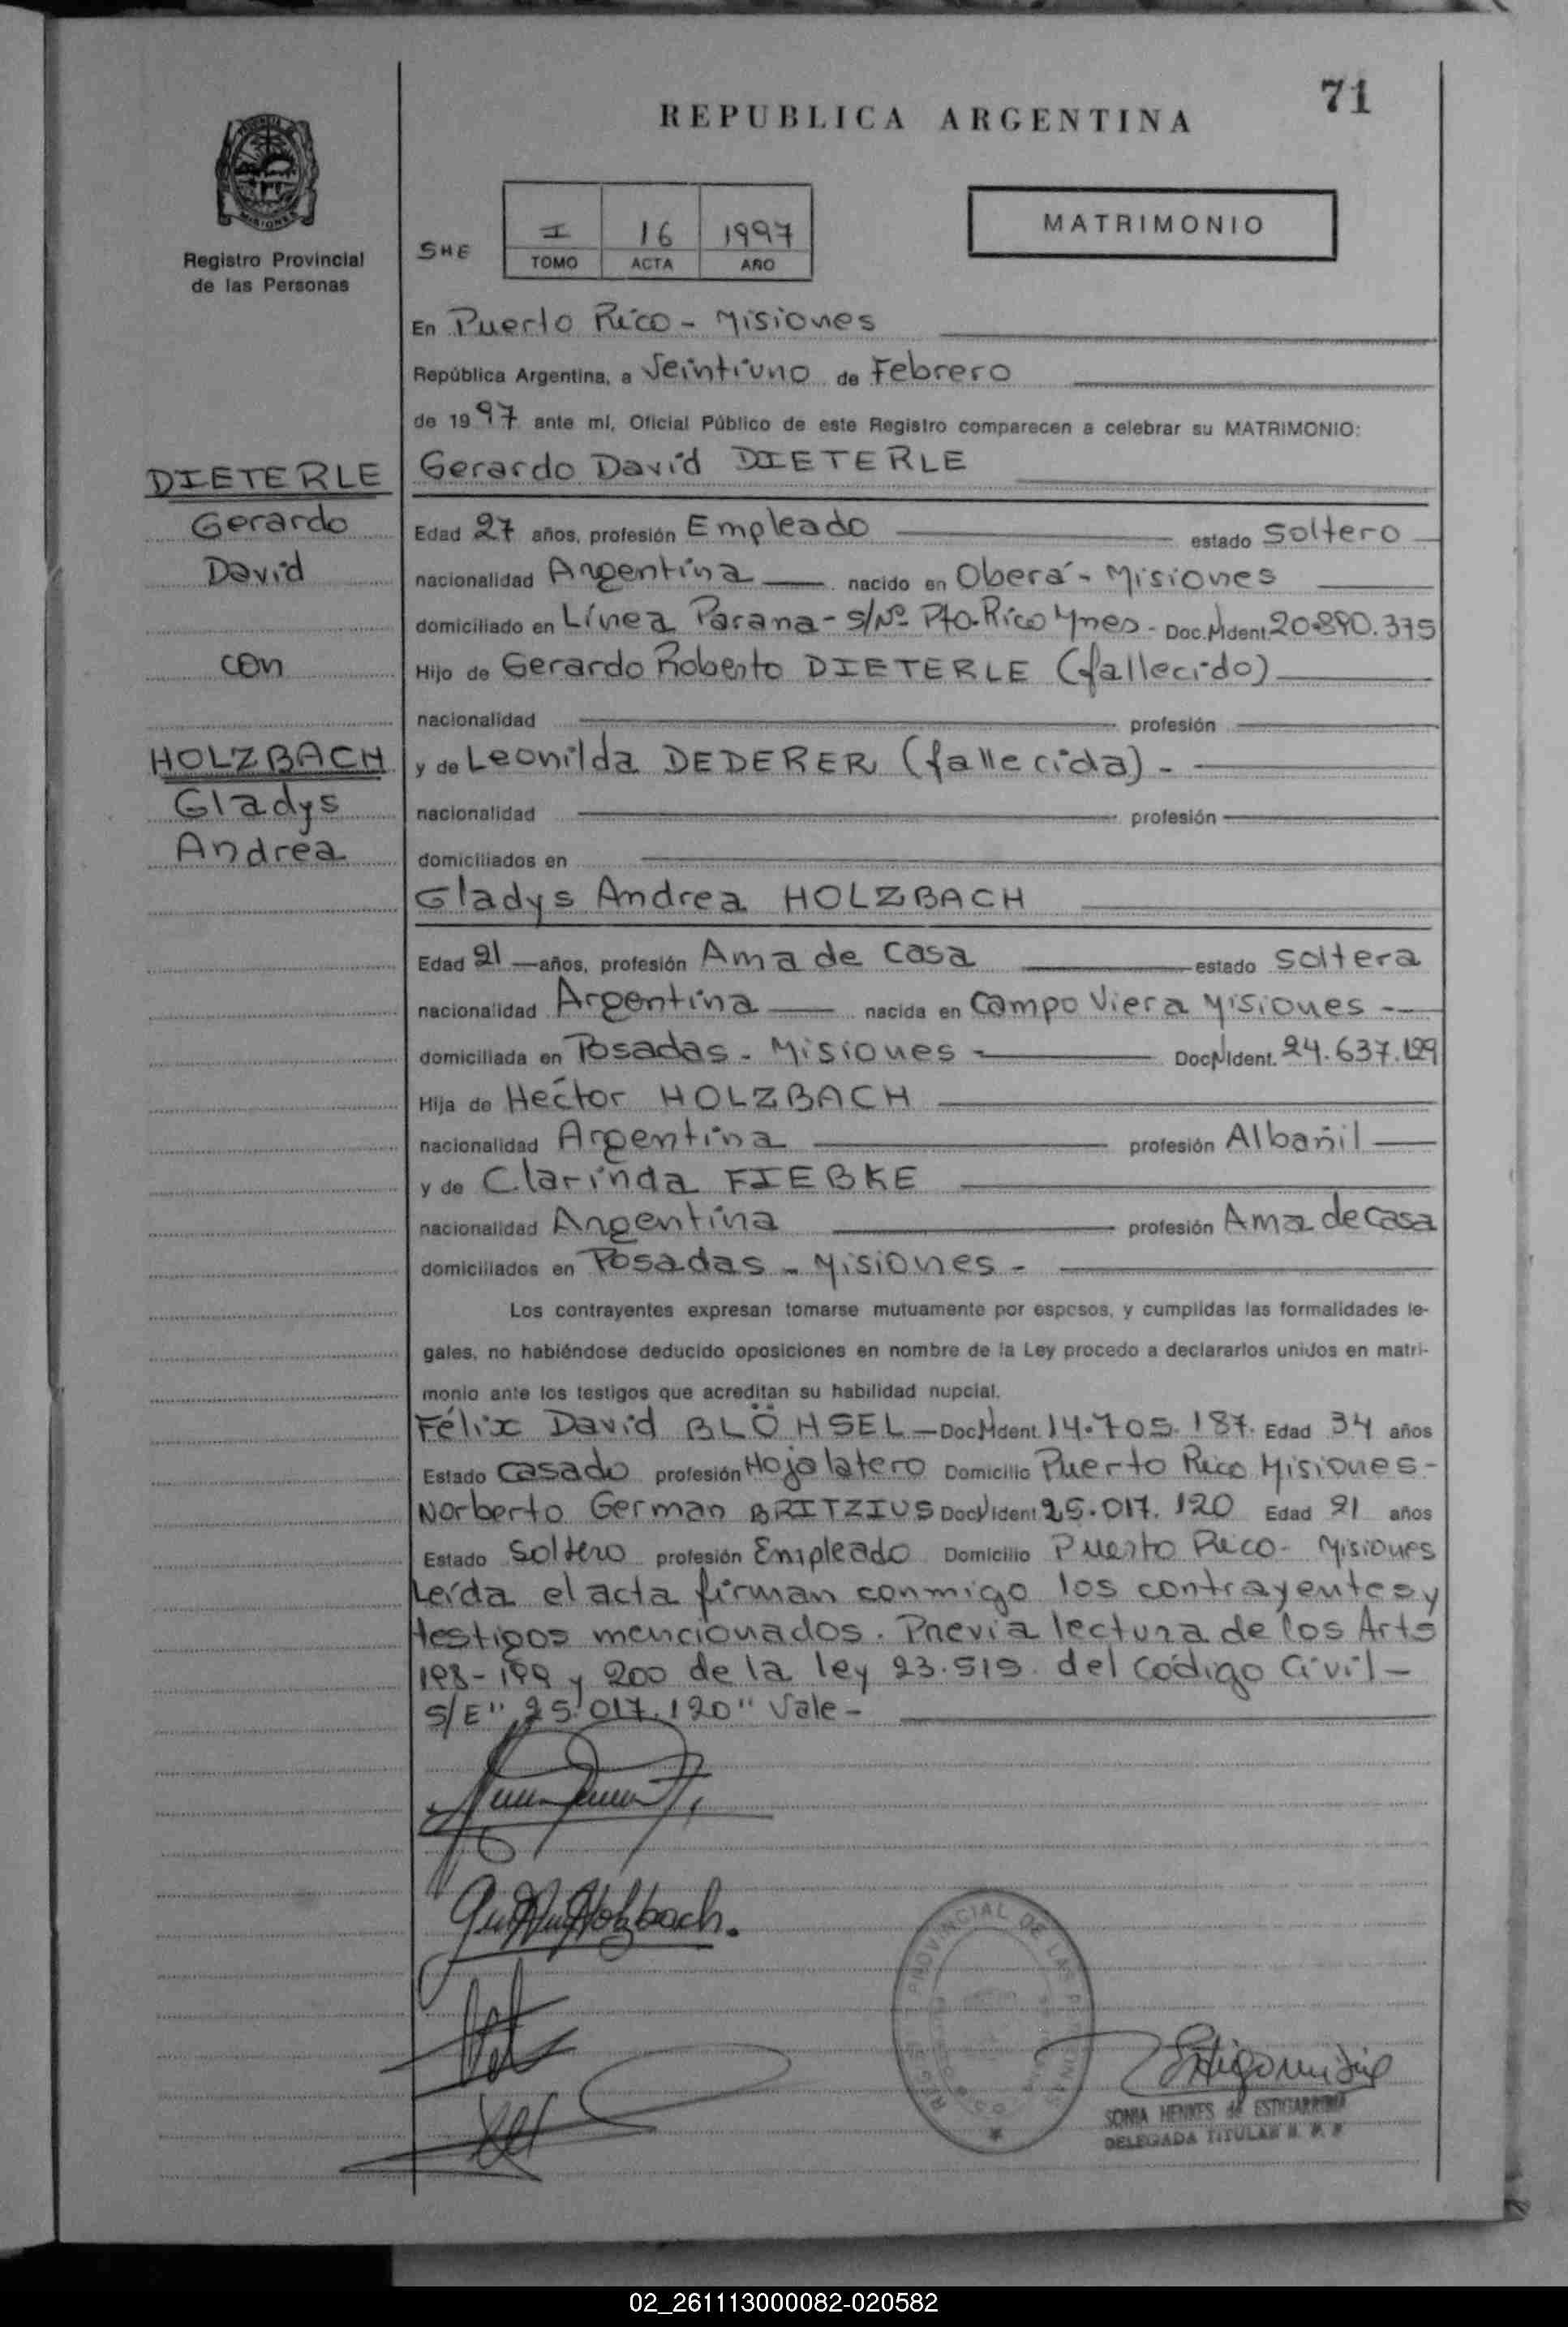 71
REPUBLICA ARGENTINA
MISIONES
Registro Provincial
de las Personas
SHE
I 16 1997
TOMO ACTA AÑO
MATRIMONIO
En Puerto Rico - Misiones
República Argentina, a Veintiuno de Febrero
de 1997 ante mí, Oficial Público de este Registro comparecen a celebrar su MATRIMONIO:
DIETERLE
Gerardo
David
con
HOLZBACH
Gladys
Andrea
Gerardo David DIETERLE
Edad 27 años, profesión Empleado estado Soltero
nacionalidad Argentina nacido en Oberá - Misiones
domiciliado en Línea Parana - S/Nº Pto. Rico Mnes - Doc. N Ident. 20.890.375
Hijo de Gerardo Roberto DIETERLE (fallecido)
nacionalidad profesión
y de Leonilda DEDERER (fallecida) -
nacionalidad profesión
domiciliados en
Gladys Andrea HOLZBACH
Edad 21 años, profesión Ama de Casa estado Soltera
nacionalidad Argentina nacida en Campo Viera Misiones -
domiciliada en Posadas - Misiones - Doc N Ident. 24.637.199
Hija de Hector HOLZBACH
nacionalidad Argentina profesión Albañil
y de Clarinda FIEBKE
nacionalidad Argentina profesión Ama de Casa
domiciliados en Posadas - Misiones -
Los contrayentes expresan tomarse mutuamente por esposos, y cumplidas las formalidades le-
gales, no habiéndose deducido oposiciones en nombre de la Ley procedo a declararlos unidos en matri-
monio ante los testigos que acreditan su habilidad nupcial.
Félix David BLÖHSEL - Doc N Ident. 14.705.187. Edad 34 años
Estado Casado profesión Hojalatero Domicilio Puerto Rico Misiones -
Norberto German BRITZIUS Doc N Ident 25.017.120 Edad 21 años
Estado Soltero profesión Empleado Domicilio Puerto Rico - Misiones
Leída el acta firman conmigo los contrayentes y
testigos mencionados. Previa lectura de los Arts
198 - 199 y 200 de la ley 23.515. del Código Civil -
S/E " 25.017.120 " Vale -
Holzbach.
PROVINCIAL DE LAS PERSONAS
SONIA HENKES de ESTIGARRIBIA
DELEGADA TITULAR R. P. P.
02_261113000082-020582